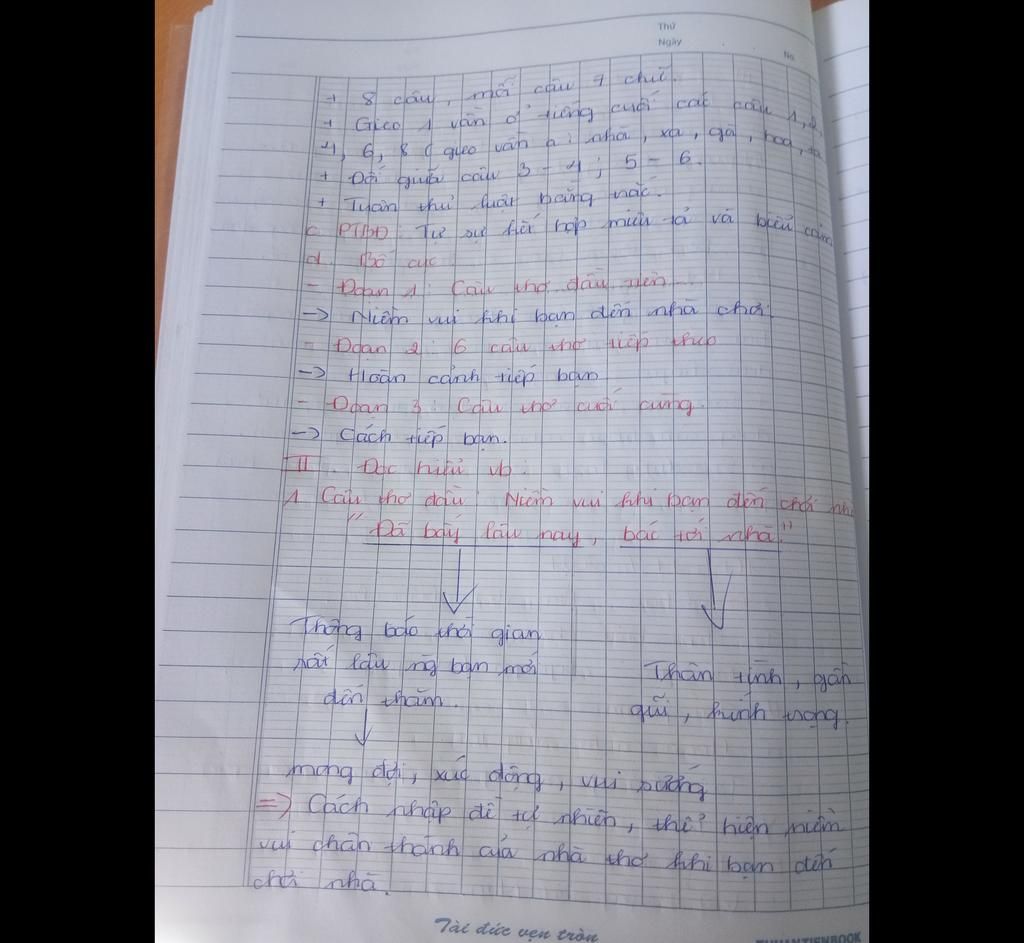 Thứ
Ngày
No
+ 8 câu, mỗi câu 7 chữ.
+ Gieo 1 vần ở tiếng cuối các câu 1, 2,
4, 6, 8 ( gieo vần a: nhà, xa, gà, hoa,
+ Đối giữa câu 3 - 4; 5 - 6.
+ Tuân thủ luật bằng trắc.
c PTBĐ: Tự sự kết hợp miêu tả và biểu cảm
d. Bố cục
- Đoạn 1: Câu thơ đầu tiên
-> Niềm vui khi bạn đến nhà chơi
- Đoạn 2: 6 câu thơ tiếp theo
-> Hoàn cảnh tiếp bạn
- Đoạn 3: Câu thơ cuối cùng.
-> Cách tiếp bạn.
II. Đọc hiểu vb:
1 Câu thơ đầu: Niềm vui khi bạn đến chơi nh
"Đã bấy lâu nay, bác tới nhà"
Thông báo thời gian
rất lâu ng bạn mới
đến thăm.
Thân tình, gần
gũi, kính trọng.
mong đợi, xúc động, vui sướng
=> Cách nhập đề tự nhiên, thể hiện niềm
vui chân thành của nhà thơ khi bạn đến
chơi nhà.
Tài đức vẹn tròn